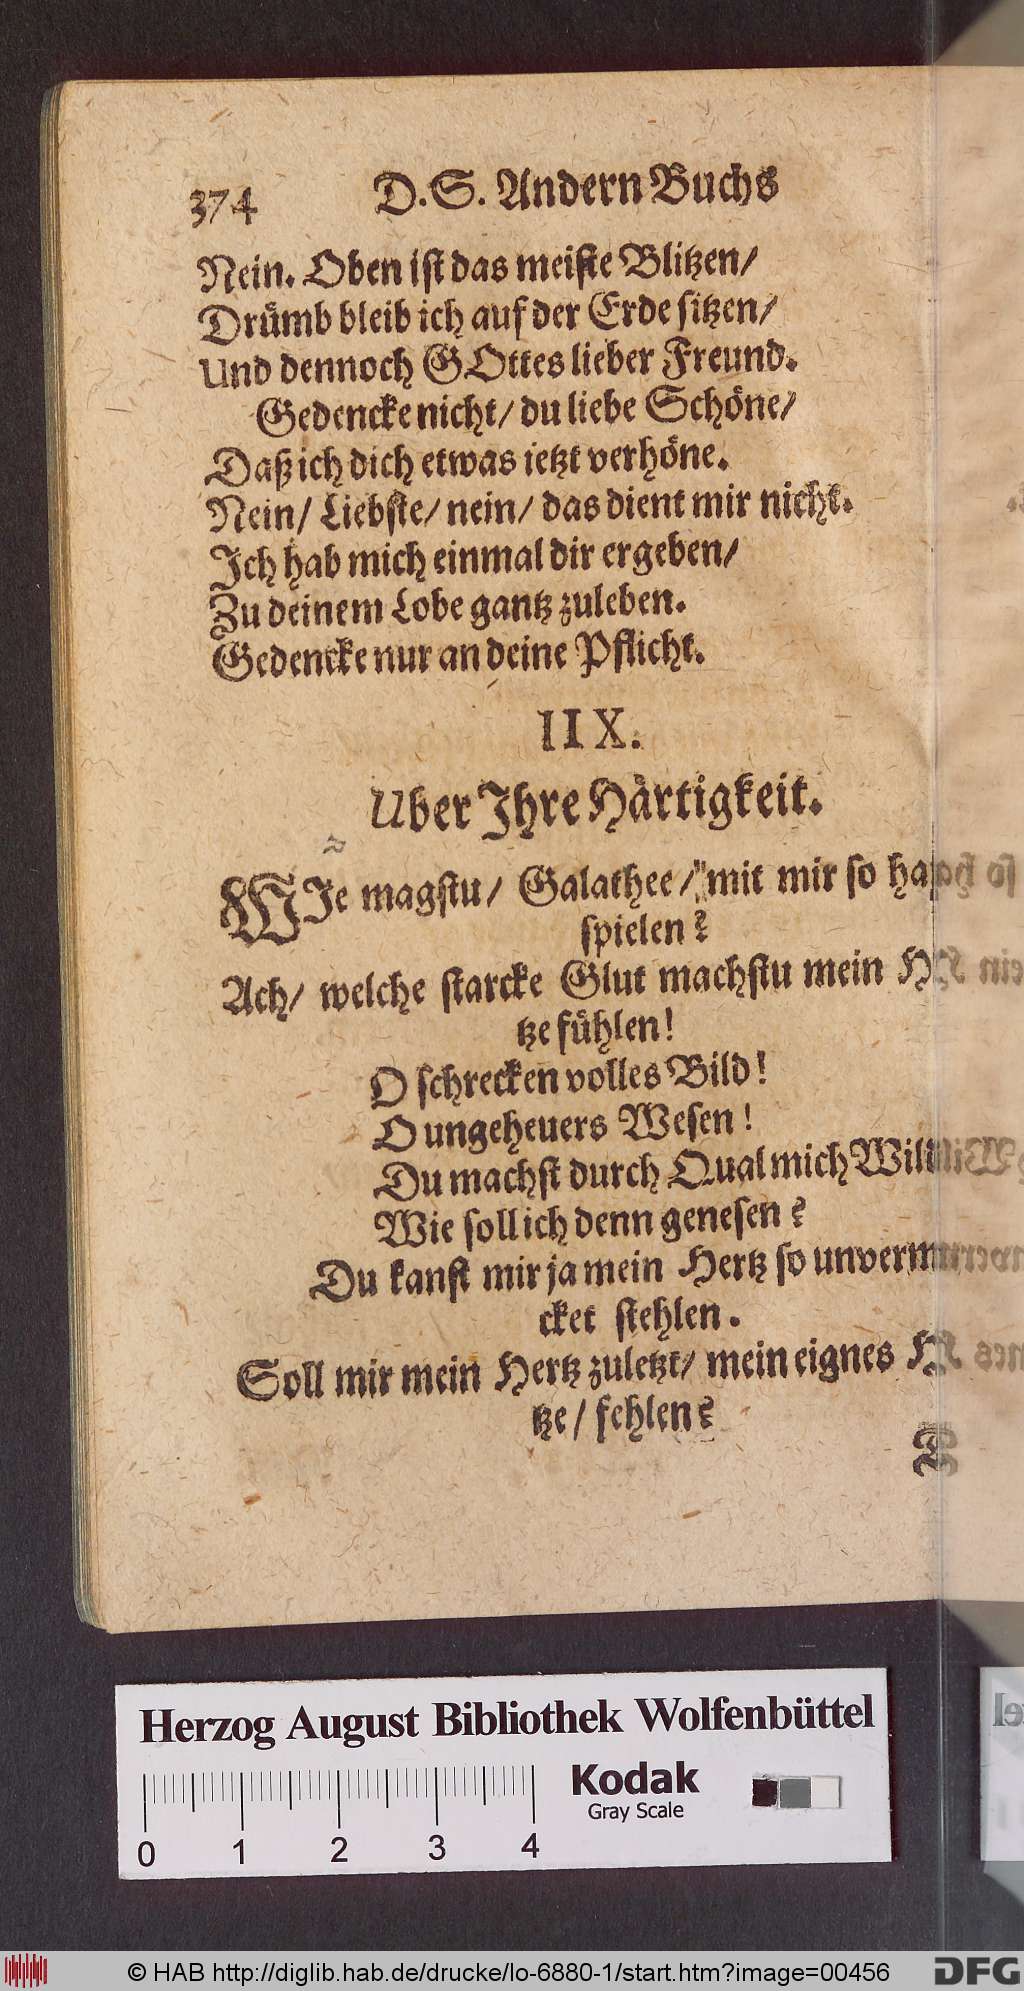 374 D. S. Andern Buchs
Nein. Oben ist das meiste Blitzen/
Drümb bleib ich auf der Erde sitzen/
Und dennoch GOttes lieber Freund.
Gedencke nicht/ du liebe Schöne/
Daß ich dich etwas ietzt verhöne.
Nein/ Liebste/ nein/ das dient mir nicht.
Ich hab mich einmal dir ergeben/
Zu deinem Lobe gantz zuleben.
Gedencke nur an deine Pflicht.
IIX.
Uber Ihre Härtigkeit.
WIe magstu/ Galathee/ mit mir so
spielen?
Ach/ welche starcke Glut machstu mein
tze fühlen!
O schrecken volles Bild!
O ungeheuers Wesen!
Du machst durch Qual mich
Wie soll ich denn genesen?
Du kanst mir ja mein Hertz so
cket stehlen.
Soll mir mein Hertz zuletzt/ mein eignes
tze/ fehlen?
Herzog August Bibliothek Wolfenbüttel
Kodak
Gray Scale
0 1 2 3 4
© HAB http://diglib.hab.de/drucke/lo-6880-1/start.htm?image=00456
DFG